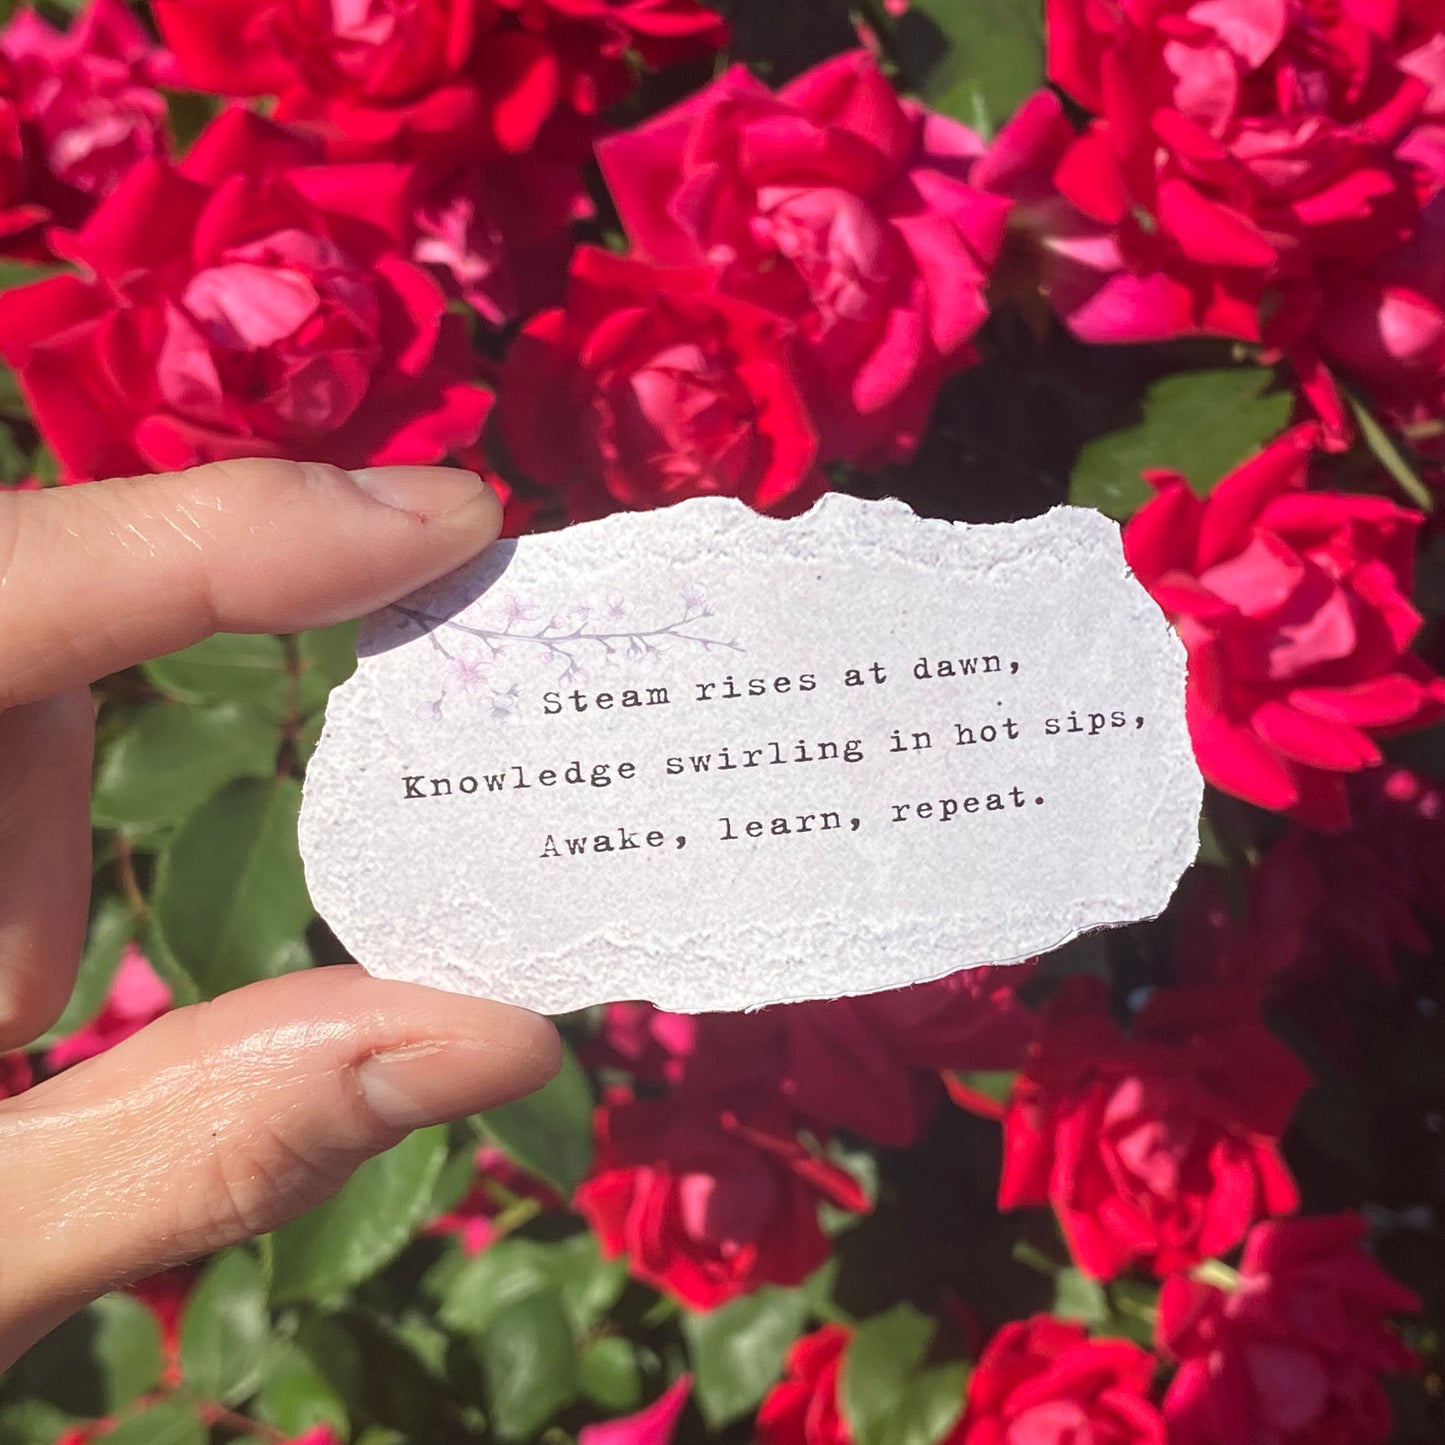 Steam rises at dawn,
Knowledge swirling in hot sips,
Awake, learn, repeat.